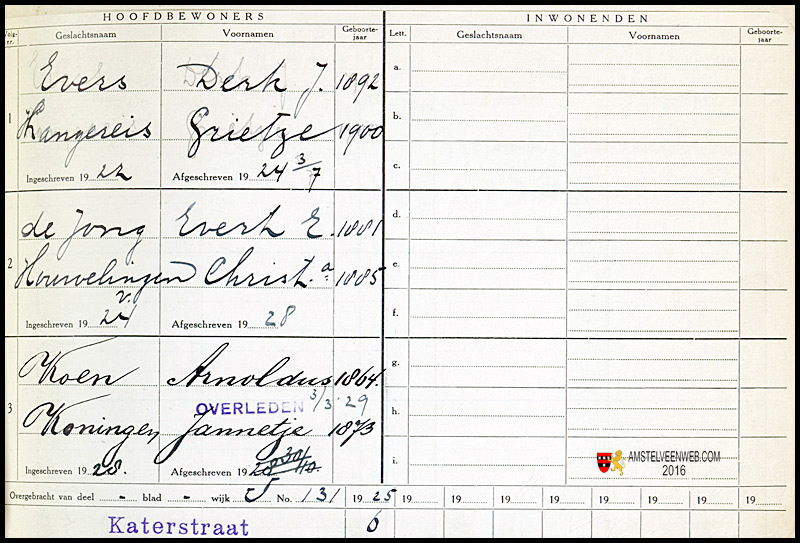 HOOFDBEWONERS INWONENDEN
Volg-nr. Geslachtsnaam Voornamen Geboorte-jaar Lett. Geslachtsnaam Voornamen Geboorte-jaar
Evers Derk J. 1892 a.
1 Langereis Grietze 1900 b.
Ingeschreven 19 22 Afgeschreven 19 24 3/7 c.
de Jong Evert E. 1881 d.
2 Houwelingen Christ.a 1885 e.
v.
Ingeschreven 19 24 Afgeschreven 19 28 f.
Koen Arnoldus 1864. g.
OVERLEDEN 3/3 '29
3 Koningen Jannetje 1873 h.
Ingeschreven 19 28. Afgeschreven 19 i.
AMSTELVEENWEB.COM
2016
Overgebracht van deel - blad - wijk J No. 131 19 25 19 19 19 19 19 19 19 19
Katerstraat 6